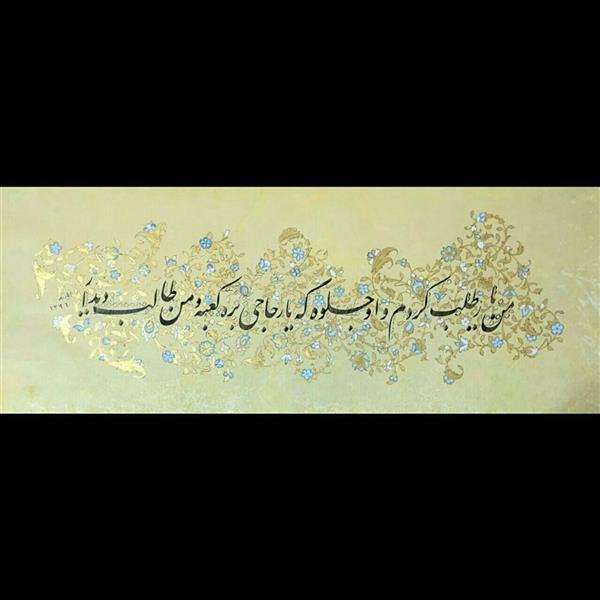 من یار طلب کردم و او جلوه‌گه یار حاجی به ره کعبه و من طالب دیدار